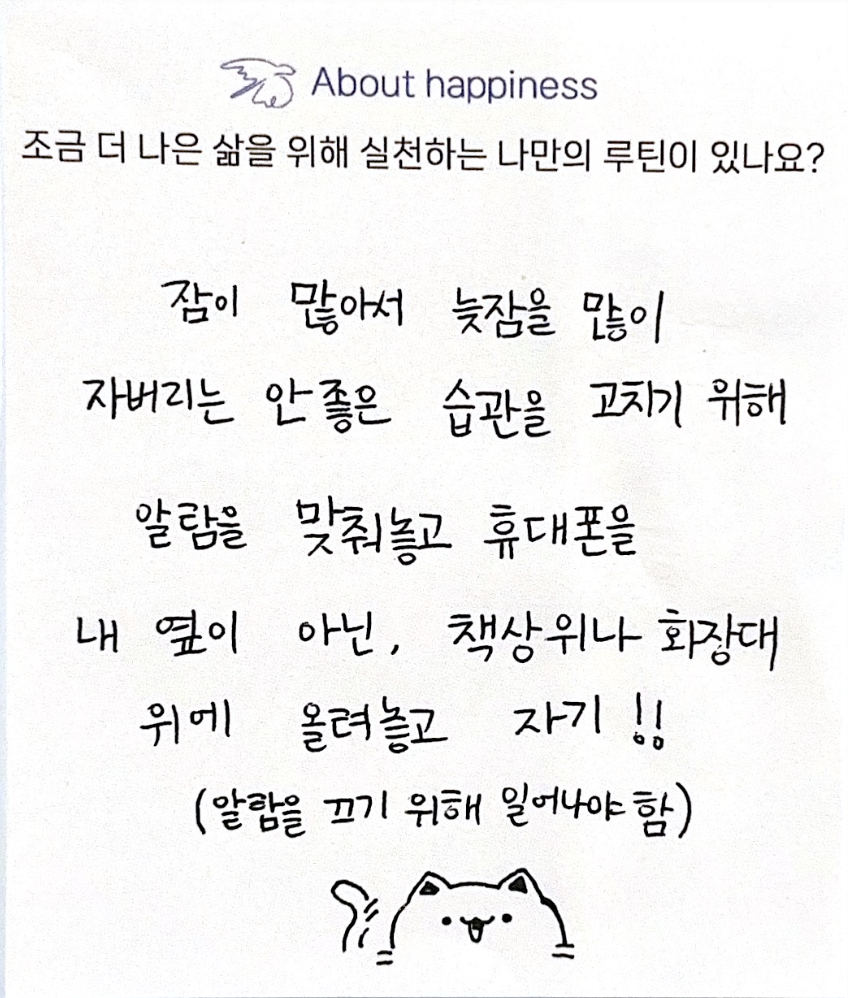 About happiness
조금 더 나은 삶을 위해 실천하는 나만의 루틴이 있나요?
잠이 많아서 늦잠을 많이
자버리는 안 좋은 습관을 고치기 위해
알람을 맞춰놓고 휴대폰을
내 옆이 아닌, 책상위나 화장대
위에 올려놓고 자기!!
(알람을 끄기 위해 일어나야 함)